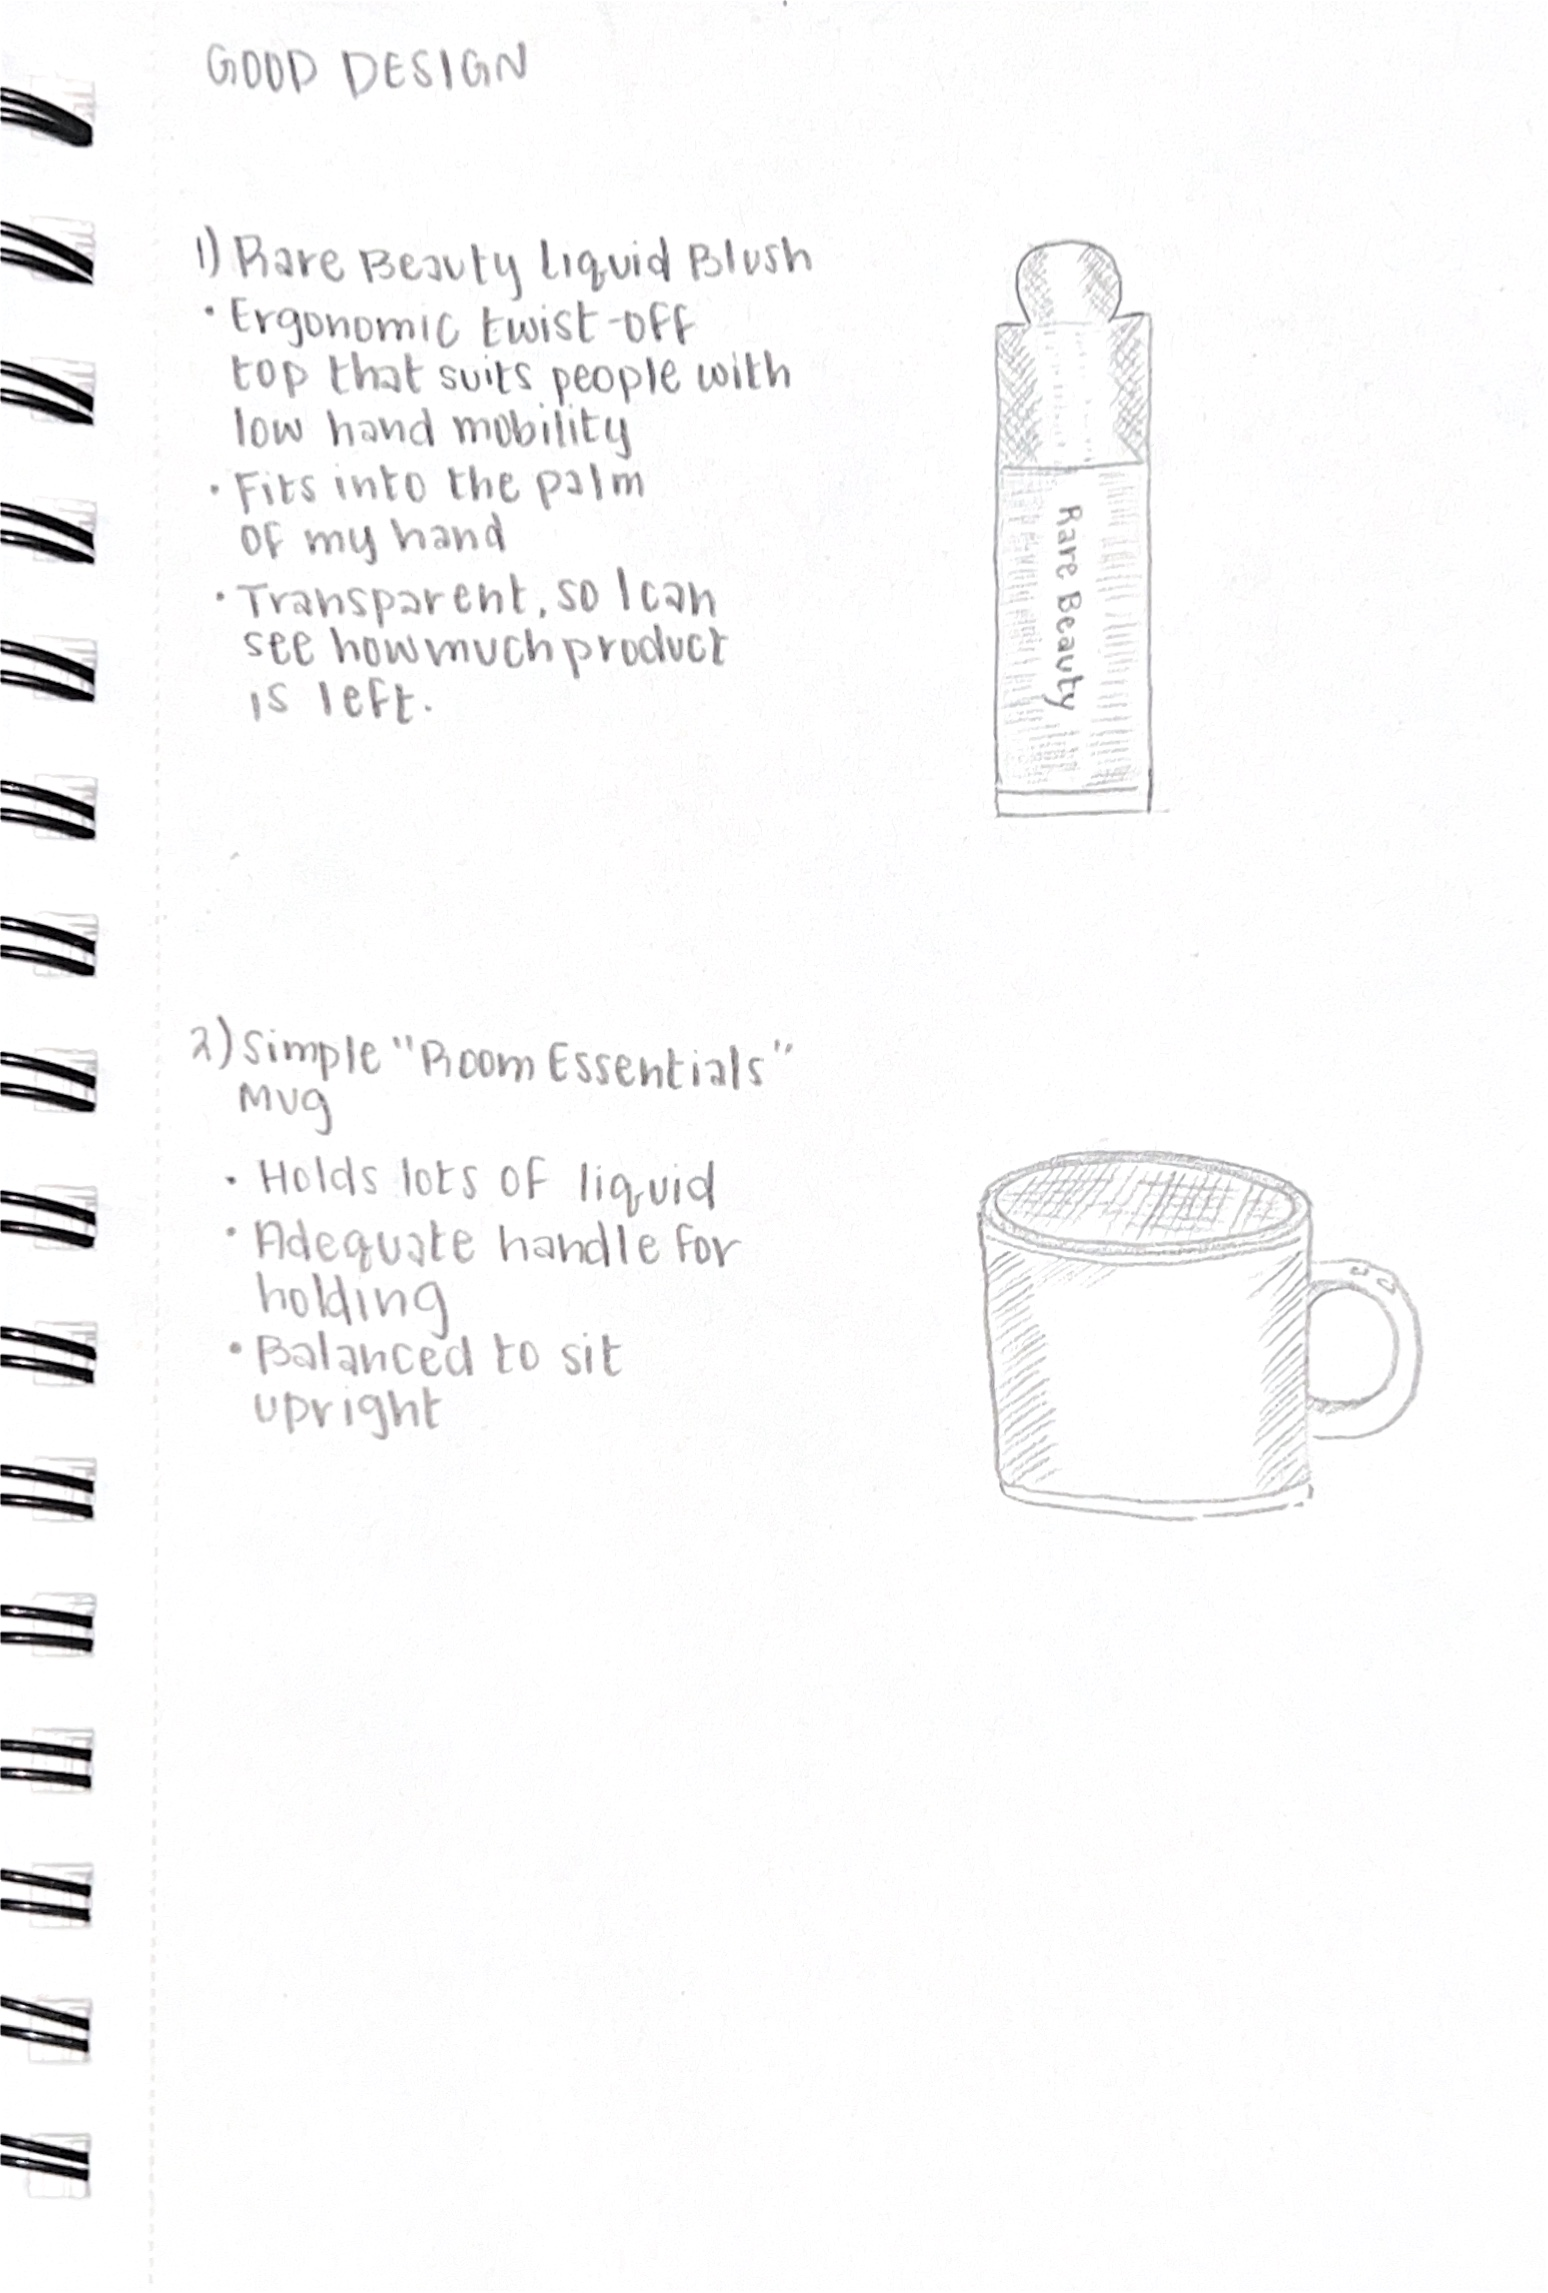 GOOD DESIGN
1) Rare Beauty Liquid Blush
• Ergonomic twist-off
top that suits people with
low hand mobility
• Fits into the palm
of my hand
• Transparent, so I can
see how much product
is left.
Rare Beauty
2) Simple "Room Essentials"
Mug
• Holds lots of liquid
• Adequate handle for
holding
• Balanced to sit
upright